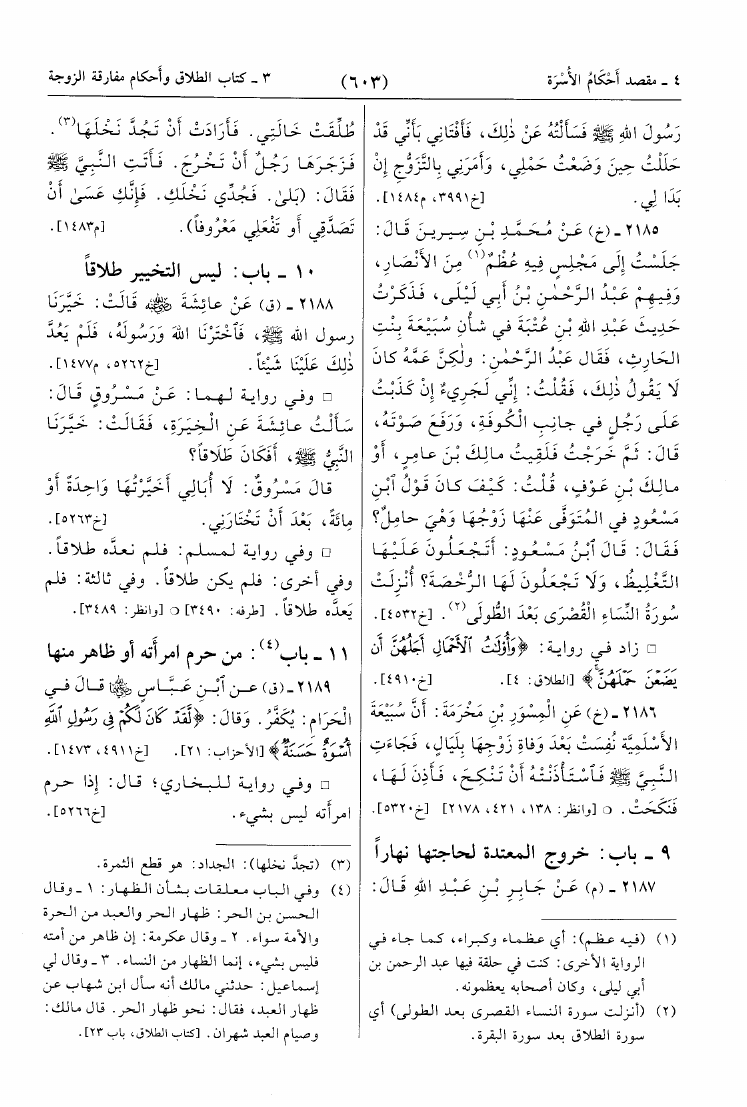 ٤ ـ مقصد أَحْكَامُ الأُسْرَة
(٦٠٣)
٣ ـ كتاب الطلاق وأحكام مفارقة الزوجة
رَسُولَ اللهِ ﷺ فَسَأَلْتُهُ عَنْ ذٰلِكَ، فَأَفْتَانِي بِأَنِّي قَدْ
حَلَلْتُ حِينَ وَضَعْتُ حَمْلِي، وَأَمَرَنِي بِالتَّزَوُّجِ إِنْ
بَدَا لِي. [خ٣٩٩١، م١٤٨٤].
٢١٨٥ ـ (خ) عَنْ مُحَمَّدِ بْنِ سِيرِينَ قَالَ:
جَلَسْتُ إِلَى مَجْلِسٍ فِيهِ عُظْمٌ(١) مِنَ الأَنْصَارِ،
وَفِيهِمْ عَبْدُ الرَّحْمٰنِ بْنُ أَبِي لَيْلَى، فَذَكَرْتُ
حَدِيثَ عَبْدِ اللهِ بْنِ عُتْبَةَ في شأْنِ سُبَيْعَةَ بِنْتِ
الحَارِثِ، فَقَالَ عَبْدُ الرَّحْمٰنِ: ولٰكِنَّ عَمَّهُ كانَ
لَا يَقُولُ ذٰلِكَ، فَقُلْتُ: إِنِّي لَجَرِيءٌ إِنْ كَذَبْتُ
عَلَى رَجُلٍ في جانِبِ الكُوفَةِ، وَرَفَعَ صَوْتَهُ،
قَالَ: ثُمَّ خَرَجْتُ فَلَقِيتُ مالِكَ بْنَ عامِرٍ، أَوْ
مالِكَ بْنَ عَوْفٍ، قُلْتُ: كَيْفَ كانَ قَوْلُ ٱبْنِ
مَسْعُودٍ في المُتَوَفَّى عَنْهَا زَوْجُهَا وَهْيَ حامِلٌ؟
فَقَالَ: قَالَ ٱبْنُ مَسْعُودٍ: أَتَجْعَلُونَ عَلَيْهَا
التَّغْلِيظَ، وَلَا تَجْعَلُونَ لَهَا الرُّخْصَةَ؟ أُنْزِلَتْ
سُورَةُ النِّسَاءِ القُصْرَى بَعْدَ الطُّولَى(٢). [خ٤٥٣٢].
□ زاد في رواية: ﴿وَأُوْلَٰتُ ٱلْأَحْمَالِ أَجَلُهُنَّ أَن
يَضَعْنَ حَمْلَهُنَّ﴾ [الطلاق: ٤]. [خ٤٩١٠].
٢١٨٦ ـ (خ) عَنِ الْمِسْوَرِ بْنِ مَخْرَمَةَ: أَنَّ سُبَيْعَةَ
الأَسْلَمِيَّةَ نُفِسَتْ بَعْدَ وَفاةِ زَوْجِهَا بِلَيَالٍ، فَجَاءَتِ
النَّبِيَّ ﷺ فَاسْتَأْذَنَتْهُ أَنْ تَنْكِحَ، فَأَذِنَ لَهَا،
فَنَكَحَتْ. ○ [وانظر: ١٣٨، ٤٢١، ٢١٧٨] [خ٥٣٢٠].
٩ ـ باب: خروج المعتدة لحاجتها نهاراً
٢١٨٧ ـ (م) عَنْ جَابِرِ بْنِ عَبْدِ اللهِ قَالَ:
(١) (فيه عظم): أي عظماء وكبراء، كما جاء في
الرواية الأخرى: كنت في حلقة فيها عبد الرحمن بن
أبي ليلى، وكان أصحابه يعظمونه.
(٢) (أنزلت سورة النساء القصرى بعد الطولى) أي
سورة الطلاق بعد سورة البقرة.
طُلِّقَتْ خَالَتِي. فَأَرَادَتْ أَنْ تَجُدَّ نَخْلَهَا(٣).
فَزَجَرَهَا رَجُلٌ أَنْ تَخْرُجَ. فَأَتَتِ النَّبِيَّ ﷺ
فَقَالَ: (بَلىٰ. فَجُدِّي نَخْلَكِ. فَإِنَّكِ عَسَىٰ أَنْ
تَصَدَّقِي أو تَفْعَلِي مَعْرُوفاً). [م١٤٨٣].
١٠ ـ باب: ليس التخيير طلاقاً
٢١٨٨ ـ (ق) عَنْ عائِشَةَ رضي الله عنها قالَتْ: خَيَّرَنَا
رسول الله ﷺ، فَاخْتَرْنَا اللهَ وَرَسُولَهُ، فَلَمْ يَعُدَّ
ذٰلِكَ عَلَيْنَا شَيْئاً. [خ٥٢٦٢، م١٤٧٧].
□ وفي رواية لهما: عَنْ مَسْرُوقٍ قَالَ:
سَأَلْتُ عائِشَةَ عَنِ الْخِيَرَةِ، فَقَالَتْ: خَيَّرَنَا
النَّبِيُّ ﷺ، أَفَكَانَ طَلَاقاً؟
قَالَ مَسْرُوقٌ: لَا أُبَالِي أَخَيَّرْتُهَا وَاحِدَةً أَوْ
مِائَةً، بَعْدَ أَنْ تَخْتَارَنِي. [خ٥٢٦٣].
□ وفي رواية لمسلم: فلم نعدَّه طلاقاً.
وفي أخرى: فلم يكن طلاقاً. وفي ثالثة: فلم
يَعدَّه طلاقاً. [طرفه: ٣٤٩٠] ○ [وانظر: ٣٤٨٩].
١١ ـ باب(٤): من حرم امرأته أو ظاهر منها
٢١٨٩ ـ (ق) عـن ٱبْـنِ عَبَّـاسٍ رضي الله عنهما قالَ فـي
الْحَرَامِ: يُكَفِّرُ. وَقَالَ: ﴿لَّقَدْ كَانَ لَكُمْ فِي رَسُولِ ٱللَّهِ
أُسْوَةٌ حَسَنَةٌ﴾ [الأحزاب: ٢١]. [خ٤٩١١، ١٤٧٣].
□ وفي رواية للبخاري؛ قال: إِذا حرم
امرأته ليس بشيء. [خ٥٢٦٦].
(٣) (تجدَّ نخلها): الجداد: هو قطع الثمرة.
(٤) وفي الباب معلقات بشأن الظهار: ١ ـ وقال
الحسن بن الحر: ظهار الحر والعبد من الحرة
والأمة سواء. ٢ ـ وقال عكرمة: إن ظاهر من أمته
فليس بشيء، إنما الظهار من النساء. ٣ ـ وقال لي
إسماعيل: حدثني مالك أنه سأل ابن شهاب عن
ظهار العبد، فقال: نحو ظهار الحر. قال مالك:
وصيام العبد شهران. [كتاب الطلاق، باب ٢٣].